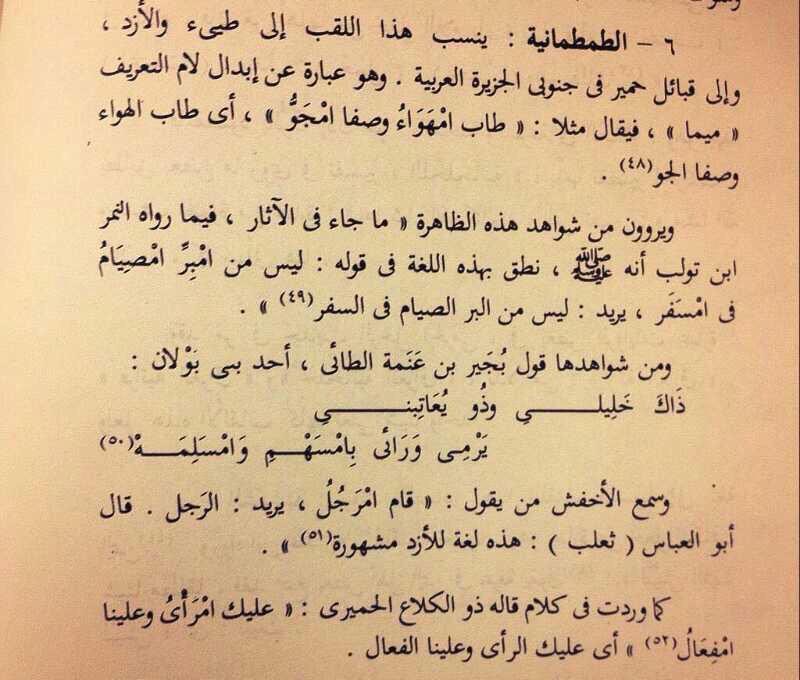 ٦ – الطمطمانية : ينسب هذا اللقب إلى طيىء والأزد ،
وإلى قبائل حمير فى جنوبى الجزيرة العربية . وهو عبارة عن إبدال لام التعريف
« ميما » ، فيقال مثلا : « طاب امْهَوَاءُ وصفا امْجَوُّ » ، أى طاب الهواء
وصفا الجو(٤٨) .
ويروون من شواهد هذه الظاهرة « ما جاء فى الآثار ، فيما رواه النمر
ابن تولب أنه ﷺ ، نطق بهذه اللغة فى قوله : ليس من امْبِرِّ امْصِيَامُ
فى امْسَفَر ، يريد : ليس من البر الصيام فى السفر(٤٩) » .
ومن شواهدها قول بُجَير بن عَنَمة الطائى ، أحد بنى بَوْلان :
ذَاكَ خَلِيلِى وذُو يُعَاتِبنى
يَرْمِى وَرَائى بِامْسَهْمِ وَامْسَلِمَهْ(٥٠)
وسمع الأخفش من يقول : « قام امْرَجُلُ ، يريد : الرَجل . قال
أبو العباس ( ثعلب ) : هذه لغة للأزد مشهورة(٥١) » .
كما وردت فى كلام قاله ذو الكلاع الحميرى : « عليك امْرَأْىُ وعلينا
امْفِعَالُ(٥٢) » أى عليك الرأى وعلينا الفعال .